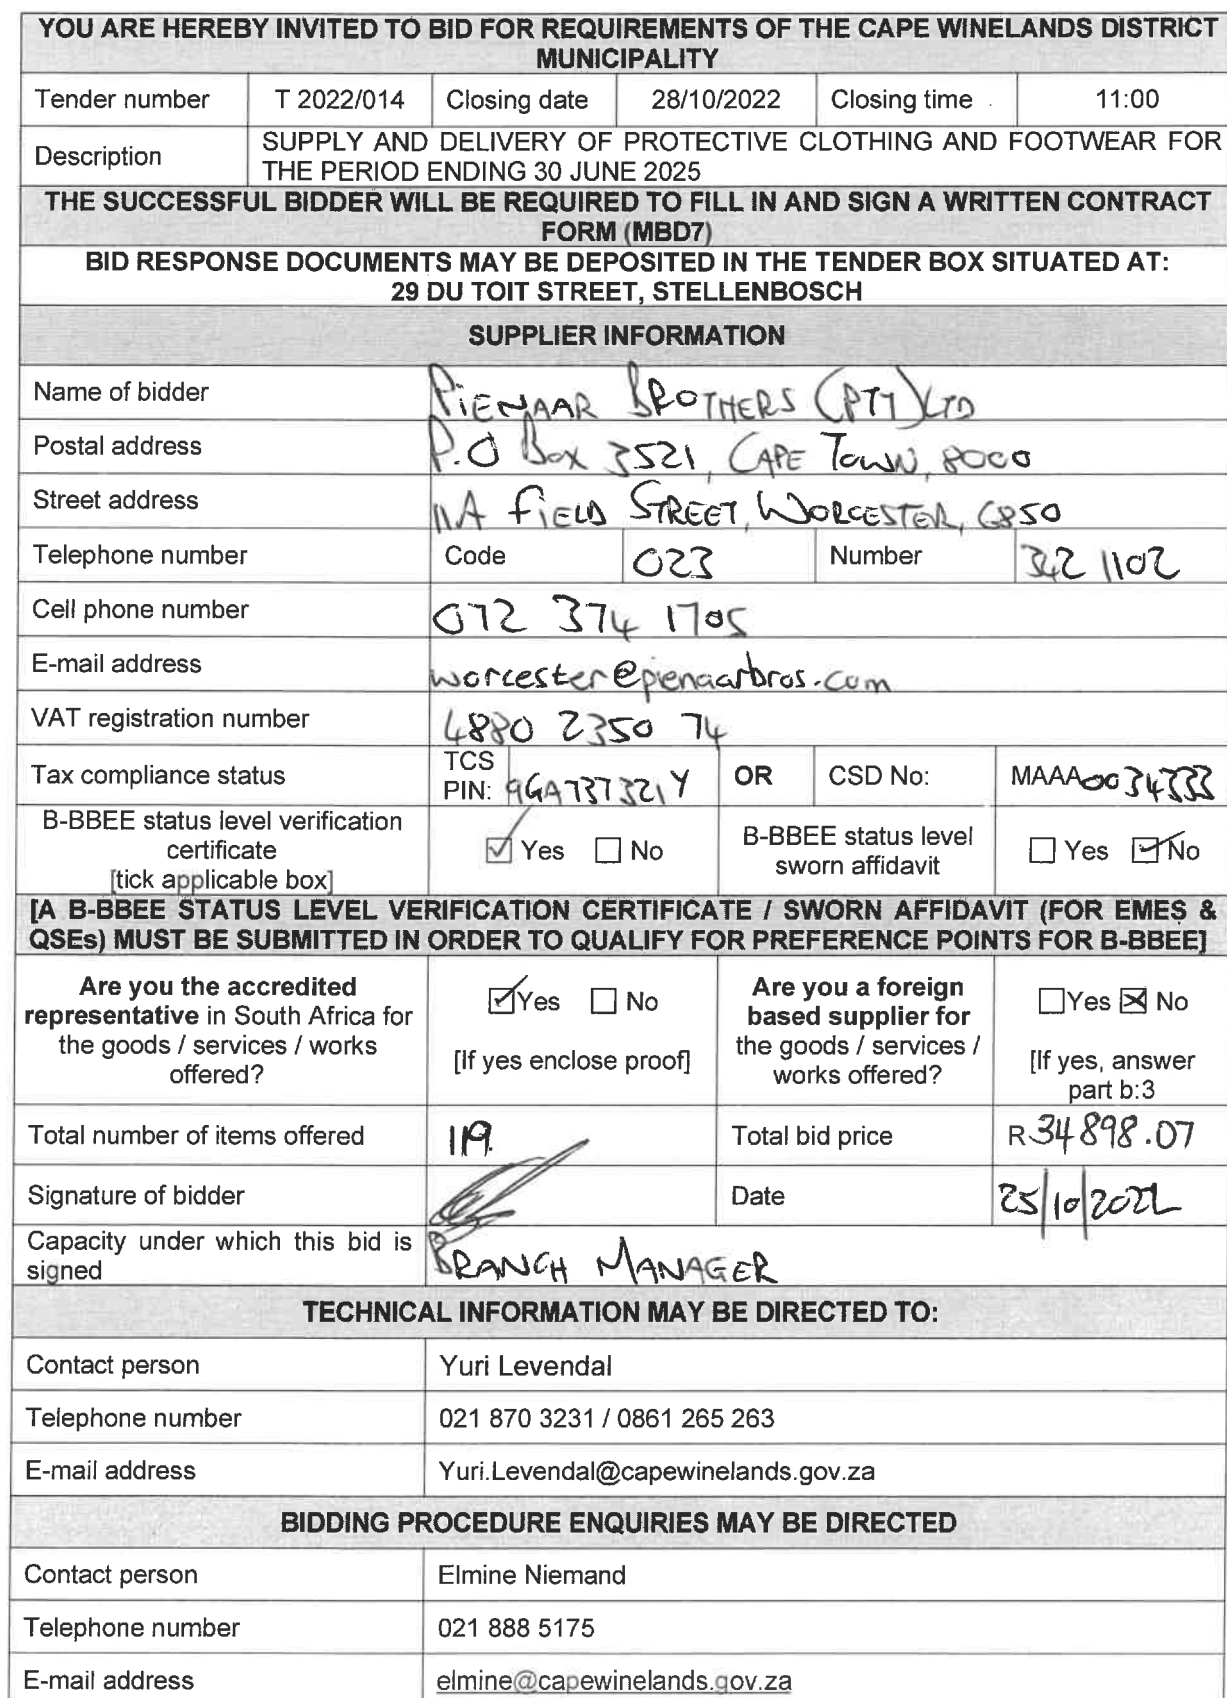 YOU ARE HEREBY INVITED TO BID FOR REQUIREMENTS OF THE CAPE WINELANDS DISTRICT
MUNICIPALITY
Tender number T 2022/014 Closing date 28/10/2022 Closing time 11:00
Description SUPPLY AND DELIVERY OF PROTECTIVE CLOTHING AND FOOTWEAR FOR
THE PERIOD ENDING 30 JUNE 2025
THE SUCCESSFUL BIDDER WILL BE REQUIRED TO FILL IN AND SIGN A WRITTEN CONTRACT
FORM (MBD7)
BID RESPONSE DOCUMENTS MAY BE DEPOSITED IN THE TENDER BOX SITUATED AT:
29 DU TOIT STREET, STELLENBOSCH
SUPPLIER INFORMATION
Name of bidder PIENAAR BROTHERS (PTY) LTD
Postal address P.O Box 3521, CAPE TOWN, 8000
Street address 11A FIELD STREET, WORCESTER, 6850
Telephone number Code 023 Number 342 1102
Cell phone number 072 374 1705
E-mail address worcester@pienaarbros.com
VAT registration number 4880 2350 74
Tax compliance status TCS PIN: 9GA737321Y OR CSD No: MAAA0034333
B-BBEE status level verification
certificate
[tick applicable box] Yes No B-BBEE status level
sworn affidavit Yes No
[A B-BBEE STATUS LEVEL VERIFICATION CERTIFICATE / SWORN AFFIDAVIT (FOR EMES &
QSEs) MUST BE SUBMITTED IN ORDER TO QUALIFY FOR PREFERENCE POINTS FOR B-BBEE]
Are you the accredited
representative in South Africa for
the goods / services / works
offered?
Yes No
[If yes enclose proof]
Are you a foreign
based supplier for
the goods / services /
works offered?
Yes No
[If yes, answer
part b:3
Total number of items offered 119. Total bid price R 34 898.07
Signature of bidder Date 25/10/2022
Capacity under which this bid is
signed BRANCH MANAGER
TECHNICAL INFORMATION MAY BE DIRECTED TO:
Contact person Yuri Levendal
Telephone number 021 870 3231 / 0861 265 263
E-mail address Yuri.Levendal@capewinelands.gov.za
BIDDING PROCEDURE ENQUIRIES MAY BE DIRECTED
Contact person Elmine Niemand
Telephone number 021 888 5175
E-mail address elmine@capewinelands.gov.za